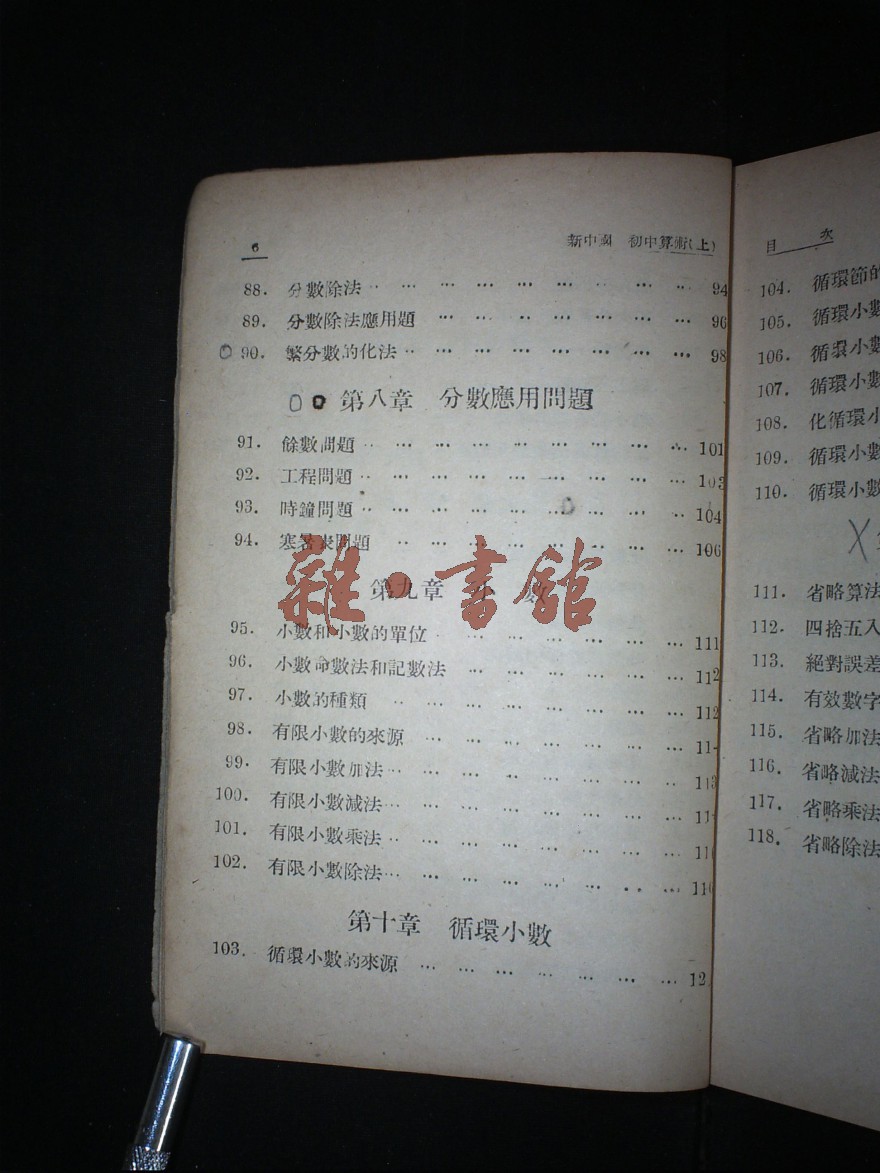 6 新中國 初中算術(上)
88. 分數除法 ... 94
89. 分數除法應用題 ... 96
90. 繁分數的化法 ... 98
第八章 分數應用問題
91. 餘數問題 ... 101
92. 工程問題 ... 103
93. 時鐘問題 ... 104
94. 寒暑表問題 ... 106
第九章 小數
95. 小數和小數的單位 ... 111
96. 小數命數法和記數法 ... 112
97. 小數的種類 ... 112
98. 有限小數的來源 ...
99. 有限小數加法 ...
100. 有限小數減法 ...
101. 有限小數乘法 ...
102. 有限小數除法 ...
第十章 循環小數
103. 循環小數的來源 ...
雜·書館
目次
104. 循環節的
105. 循環小數
106. 循環小數
107. 循環小數
108. 化循環小
109. 循環小數
110. 循環小數
111. 省略算法
112. 四捨五入
113. 絕對誤差
114. 有效數字
115. 省略加法
116. 省略減法
117. 省略乘法
118. 省略除法